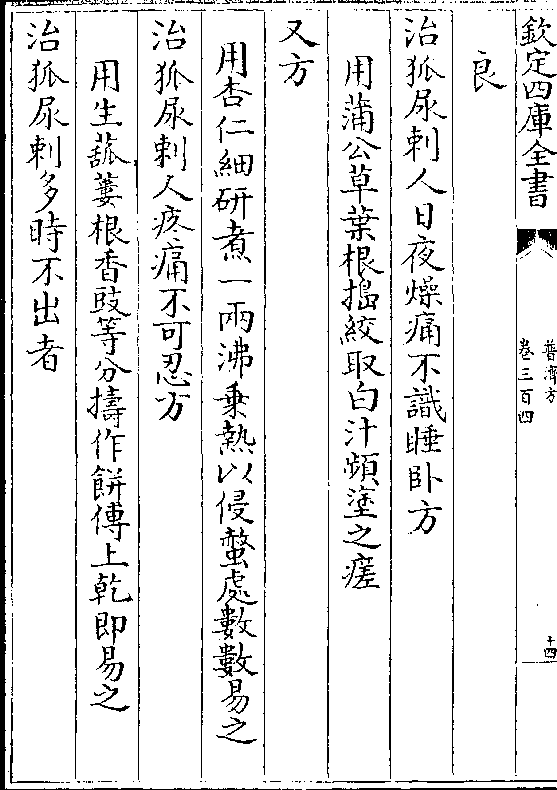 欽定四庫全書
普濟方
卷三百四
十四
良
治狐尿刺人日夜燥痛不識睡卧方
用蒲公草葉根搗絞取白汁頻塗之瘥
又方
用杏仁細研煮一兩沸乗熱以侵螫處數數易之
治狐尿刺人疼痛不可忍方
用生蓏蔞根香豉等分擣作餅傅上乾即易之
治狐尿刺多時不出者